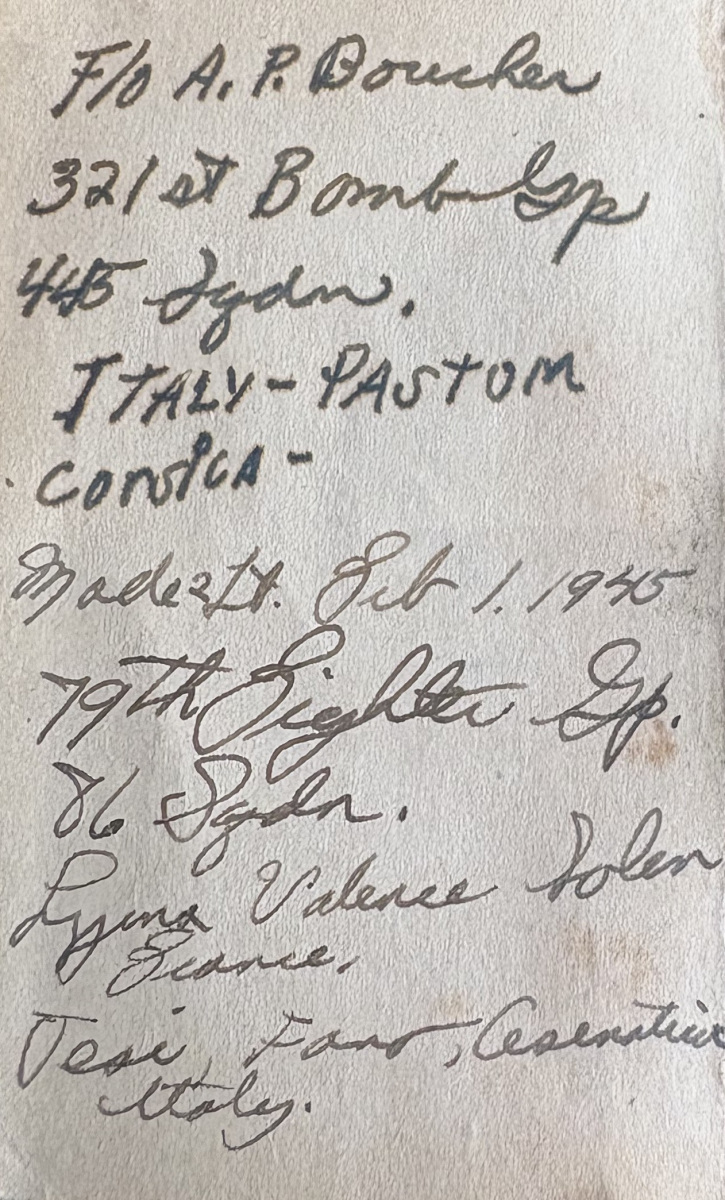 F/O A. P. Boucher
321 st Bomb Gp
445 Sqdn.
ITALY - PASTOM
CORSICA -
Made 2 Lt. Feb 1. 1945
79th Fighter Gp.
86 Sqdn.
Valence
France.
Jesi, Fano, Cesenatico
Italy.